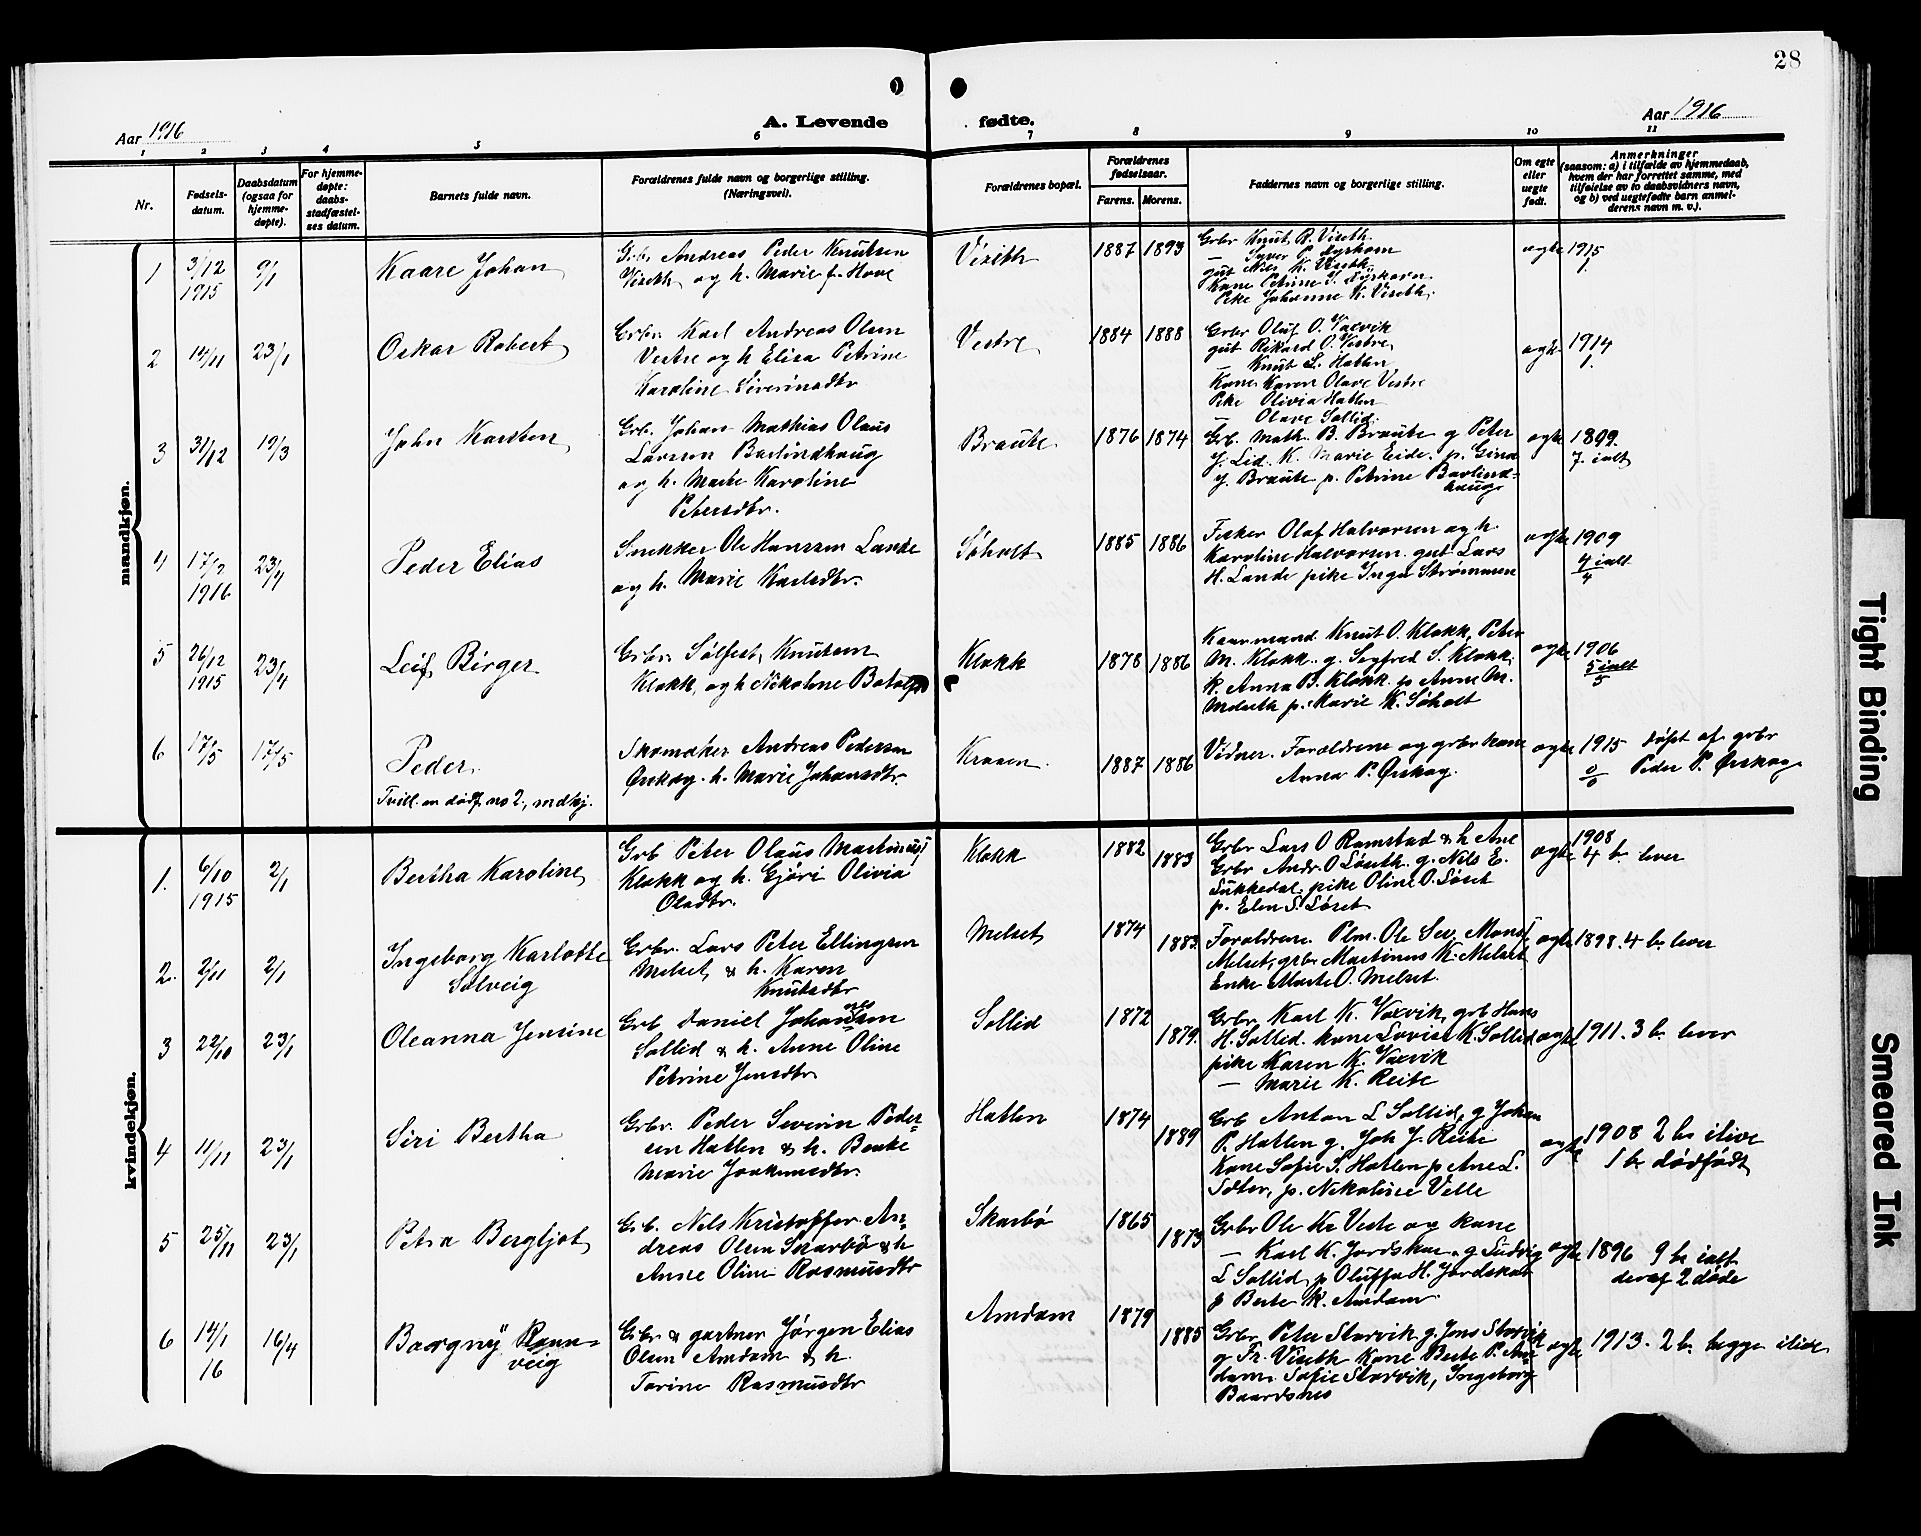 28
Aar 1916
A. Levende
fødte.
Aar 1916
1 2 3 4 5 6 7 8 9 10 11
Nr.
Fødsels-
datum.
Daabsdatum
(ogsaa for
hjemme-
døpte).
For hjemme-
døpte:
daabs-
stadfæstel-
ses datum.
Barnets fulde navn.
Forældrenes fulde navn og borgerlige stilling.
(Næringsvei).
Forældrenes bopæl.
Forældrenes
fødselsaar.
Farens. Morens.
Faddernes navn og borgerlige stilling.
Om egte
eller
uegte
født.
Anmerkninger
(saasom: a) i tilfælde av hjemmedaab,
hvem der har forrettet samme, med
tilføielse av to daabsvidners navn,
og b) ved uegtefødte barn anmel-
derens navn m. v.).
mandkjøn.
1
3/12
1915
9/1
Kaare Johan
Grb. Andreas Peder Knutsen
Viseth og h. Marie f. Hove
Viseth
1887 1893
Grbr Knut R. Viseth
— Syver P. Lyskam
gut Nils K. Viseth
Kone Petrine S.
Pike Johanne K. Viseth.
egte
1915
1.
2
14/11
23/1
Oskar Robert
Grbr. Karl Andreas Olsen
Vestre og h Elisa Petrine
Karoline Siverinsdtr
Vestre
1884 1888
Grbr Oluf O. Vaxvik
gut Rikard O. Vestre
— Knut L. Hatlen
Kone Karen Olave Vestre
Pike Olivia Hatlen
— Olave Sollid.
egte
1914
1.
3
31/12
19/3
John Karsten
Grb. Johan Mathias Olaus
Larssen Barlindhaug
og h. Marte Karoline
Petersdtr.
Braute
1876 1874
Grb. Math. B. Braute g Peter
J. Lid. K. Marie Eide. p. Gina
J. Braute p. Petrine Barlind-
haug
egte
1899.
7. ialt
4
17/2
1916
23/4
Peder Elias
Snekker Ole Hanssen Lande
og h. Marie Karlsdtr.
Søholt
1885 1886
Fisker Olaf Halvorsen og h.
Karoline Halvorsen. gut Lars
H. Lande pike Inga Strømmen
egte
1909
4 ialt
4
5
26/12
1915
23/4
Leif Birger
Grbr. Sølfest Knutsen
Klokk, og h Nikoline Batolf
Klokk
1878 1886
Kaarmand Knut O. Klokk, Peter
M. Klokk. g. Segfred S. Klokk.
K. Anna B. Klokk. p Anne M.
Melseth p. Marie K. Søholt
egte
1906
5 ialt
5
6
17/5
17/5
Peder.
Tvill. en dødf. no 2, mdkj.
Skomaker Andreas Pedersen
Ørskog. h. Marie Johansdtr.
Kroken.
1887 1886
Vidner. Forældrene og grbr kone
Anna P. Ørskog.
egte
1915
0
0
døpt af grbr
Peder P. Ørskog
kvindekjøn.
1.
6/10
1915
2/1
Bertha Karoline
Grb Peter Olaus Martinus
Klokk og h. Gjøri Olivia
Oladtr.
Klokk
1882 1883
Grbr Lars O Ramstad & h Ane
Grbr Andr. O Løseth. g. Nils E.
Lukkedal, pike Oline O. Løset
p. Elen S. Løset
egte
1908
4 br lever
2.
2/11
2/1
Ingeborg Karlotte
Solveig
Grbr. Lars Peter Ellingsen
Melset & h. Karen
Knutsdtr
Melset
1874 1883.
Forældrene. Plm. Ole Sev. Mons
Melset, grbr Martinus K. Melset
Enke Marte O. Melset.
egte
1898. 4 br. lever
3
22/10
23/1
Oleanna Jensine
Grb Daniel Johannesen
Sollid & h. Anne Oline
Petrine Jensdtr
Sollid
1872 1879.
Grbr. Karl K. Vaxvik, grb Hans
H. Sollid. kone Lovise K. Sollid
pike Karen K. Vaxvik
— Marie K. Reite
egte
1911. 3 br. lever
4
11/11
23/1
Siri Bertha
Grbr. Peder Severin Peder-
sen Hatlen & h. Beate
Marie Joakimsdtr.
Hatlen
1874 1889
Grb Anton L Sollid, g Johan
P. Hatlen g. Joh J. Reite
Kone Sofie S. Hatlen p Ane L.
p. Nikoline Velle
egte
1908 2 br ilive
1 br dødfødt
5
25/11
23/1
Petra Bergljot
Grb. Nils Kristoffer An-
dreas Olsen Skarbø & h
Anne Oline Rasmusdtr
Skarbø
1865 1873
Grbr Ole Kr Veste og kone
— Karl K. Jordskar. g Ludvig
L Sollid p Oluffa H. Jordskar
p Berte K. Amdam
egte
1896 9 br ialt
deraf 2 døde
6
14/1
16
16/4
Borgny Rann-
veig
Grbr & gartner Jørgen Elias
Olsen Amdam & h.
Torine Rasmusdtr
Amdam
1879 1885
Grbr Peter Storvik g. Jons Storvik
g Fr. Viseth Kone Berte P. Am-
dam Sofie Storvik, Ingeborg
Baardsnes
egte
1913. 2 br. begge ilive
Tight Binding
Smeared Ink